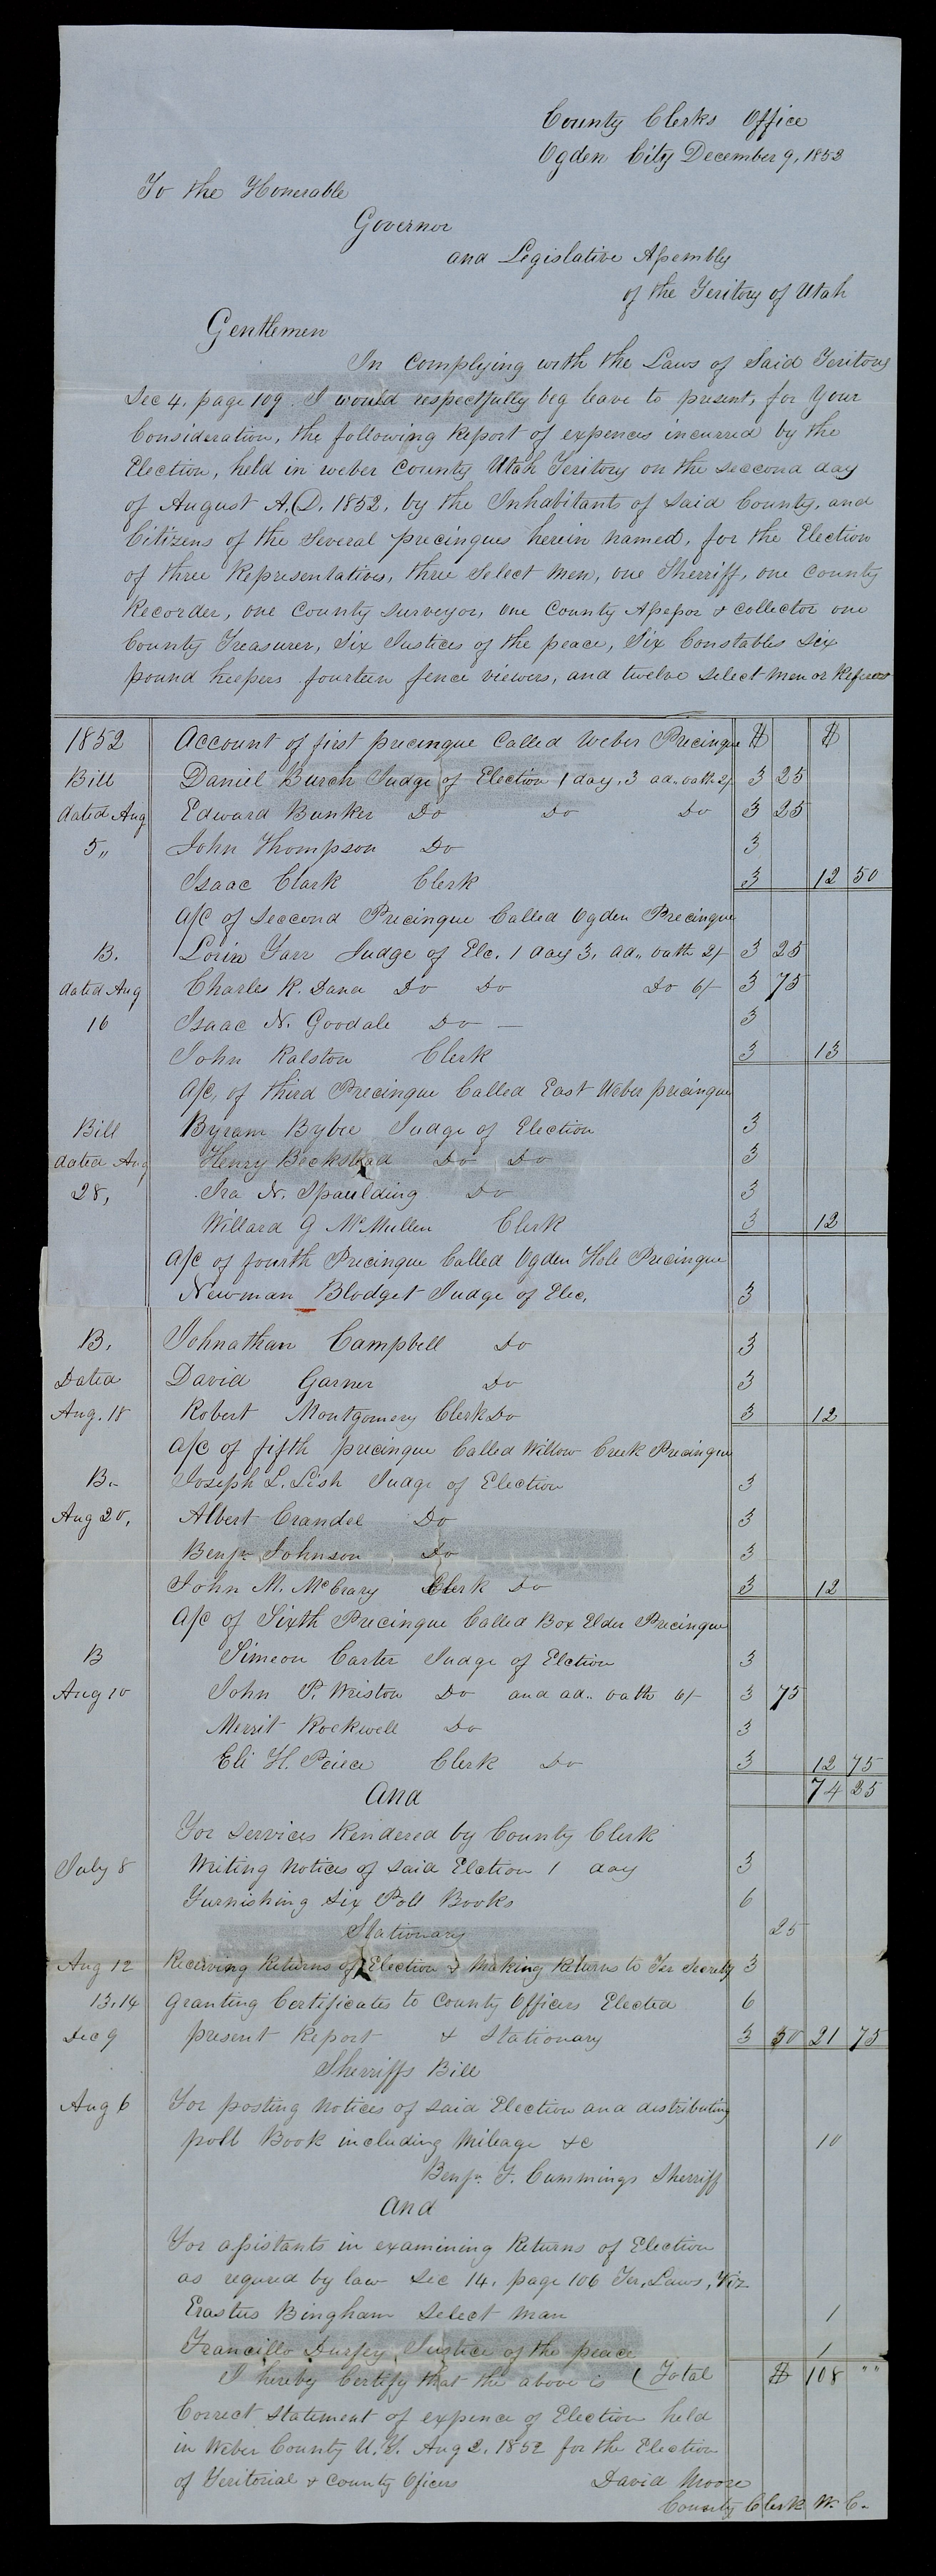 County Clerks Office
Ogden City December 9, 1852
To the Honerable
Governor
and Legislative Assembly
of the Teritory of Utah
Gentlemen
In complying with the Laws of Said Teritory
Sec 4. page 109. I would respectfully beg leave to present, for Your
Consideration, the following Report of expences incurred by the
Election, held in weber County Utah Teritory on the seccond day
of August A.D. 1852. by the Inhabitants of said County, and
Citizens of the several precinques herein named, for the Election
of three Representatives, three select men, one Sherriff, one county
Recorder, one County surveyor, one County Assessor & collector one
County Treasurer, Six Justices of the peace, Six Constables six
pound keepers fourteen fence viewers, and twelve select men or Referees
1852 Account of first precinque Called Weber Precinque $ $
Bill Daniel Burch Judge of Election 1 day, 3 ad., oath 2/ 3 25
dated Aug Edward Bunker Do Do Do 3 25
5,, John Thompson Do 3
Isaac Clark Clerk 3 12 50
A/C of seccond Precinque Called Ogden Precinque
B. Lorin Farr Judge of Elc. 1 day 3, ad., oath 2/ 3 25
dated Aug Charles R. Dana Do Do Do 6/ 3 75
16 Isaac N. Goodale Do — 3
John Ralston Clerk 3 13
A/C, of third Precinque Called East Weber precinque
Bill Byram Bybee Judge of Election 3
dated Aug Henry Beckstead Do Do 3
28, Ira N. Spaulding Do 3
Willard G McMullen Clerk 3 12
A/C of fourth Precinque Called Ogden Hole Precinque
Newman Blodget Judge of Elec, 3
B. Johnathan Campbell Do 3
Dated David Garner Do 3
Aug. 18 Robert Montgomery Clerk Do 3 12
A/C of fifth precinque Called Willow Creek Precinque
B.- Joseph L. Lish Judge of Election 3
Aug 20, Albert Crandel Do 3
Benjn Johnson Do 3
John M. McCrary Clerk Do 3 12
A/C of Sixth Precinque Called Box Elder Precinque
B Simeon Carter Judge of Elction 3
Aug 10 John P. Wriston Do and ad.. oath 6/- 3 75
Merrit Rockwell Do 3
Eli H. Peirce Clerk Do 3 12 75
And 74 25
For services Rendered by County Clerk
July 8 Writing Notices of said Election 1 day 3
Furnishing six Poll Books 6
Stationary 25
Aug 12 Receiving Returns of Election & Making Returns to Ter Secrety 3
13.14 Granting Certificates to County Officers Elected 6
Dec 9 present Report & Stationary 3 50 21 75
Sherriffs Bill
Aug 6 For posting Notices of said Election and distributing
poll Book including Mileage &c 10
Benjn. F. Cummings Sherriff
And
For assistants in examining Returns of Election
as requred by law Sec 14. page 106 Ter, Laws, Viz
Erastus Bingham Select Man 1
Francillo Durfey Justice of the peace 1
I hereby Certify that the above is ( Total $ 108 " "
Correct statement of expence of Election held
in Weber County U.T. Aug 2. 1852 for the Election
of Teritorial & County Oficers David Moore
County Clerk W. C.